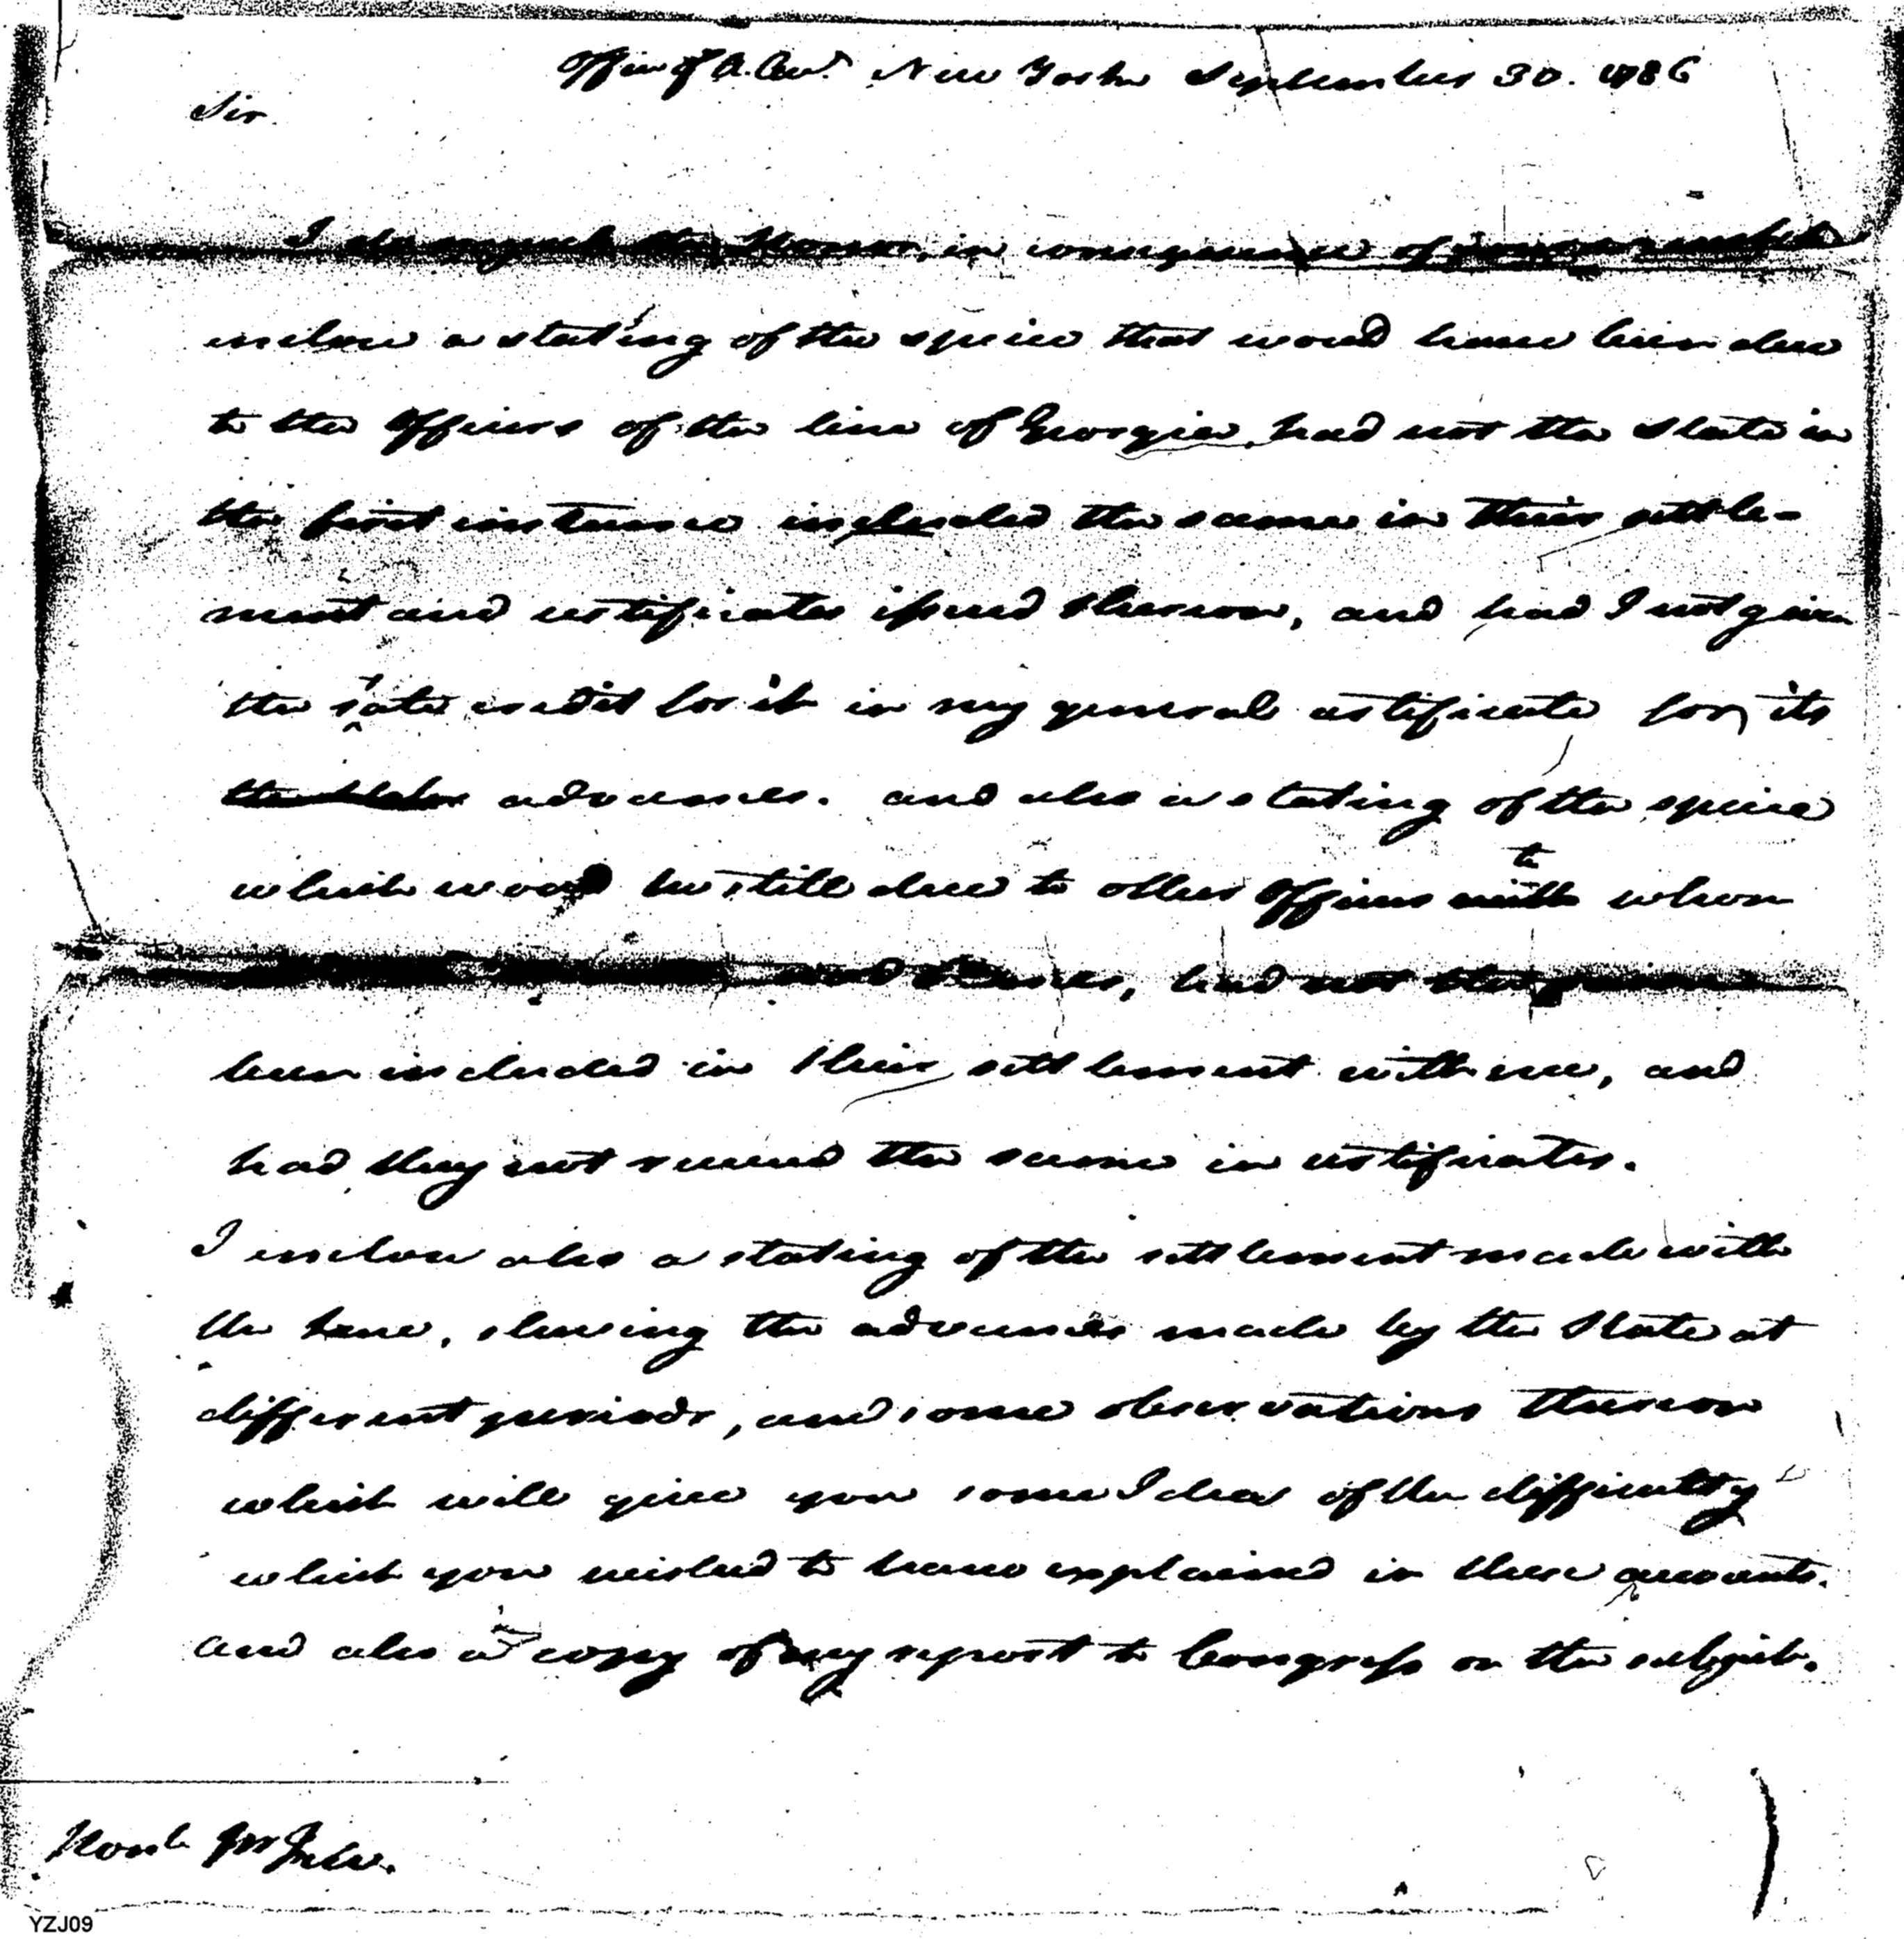 Office of A. Acco.ts New York September 30. 1786
Sir
I do myself the Honor, in consequence of your request
inclose a stating of the specie that woud have been due
to the Officers of the line of Georgia, had not the State in
the first instance included the same in their settle-
ment and certificates issued thereon, and had I not given
the State credit for it in my general certificate for its
advances. and also a stating of the specie
which woud be still due to other Officers to whom
had not the
been included in their settlement with me, and
had they not received the same in certificates.
I inclose also a stating of the settlement made with
the line, shewing the advances made by the State at
different periods, and some observations thereon
which will give you some Idea of the difficulty
which you wished to have explained in these accounts.
and also a copy of my report to Congress on the subject.
Honble Mr Few.
YZJ09